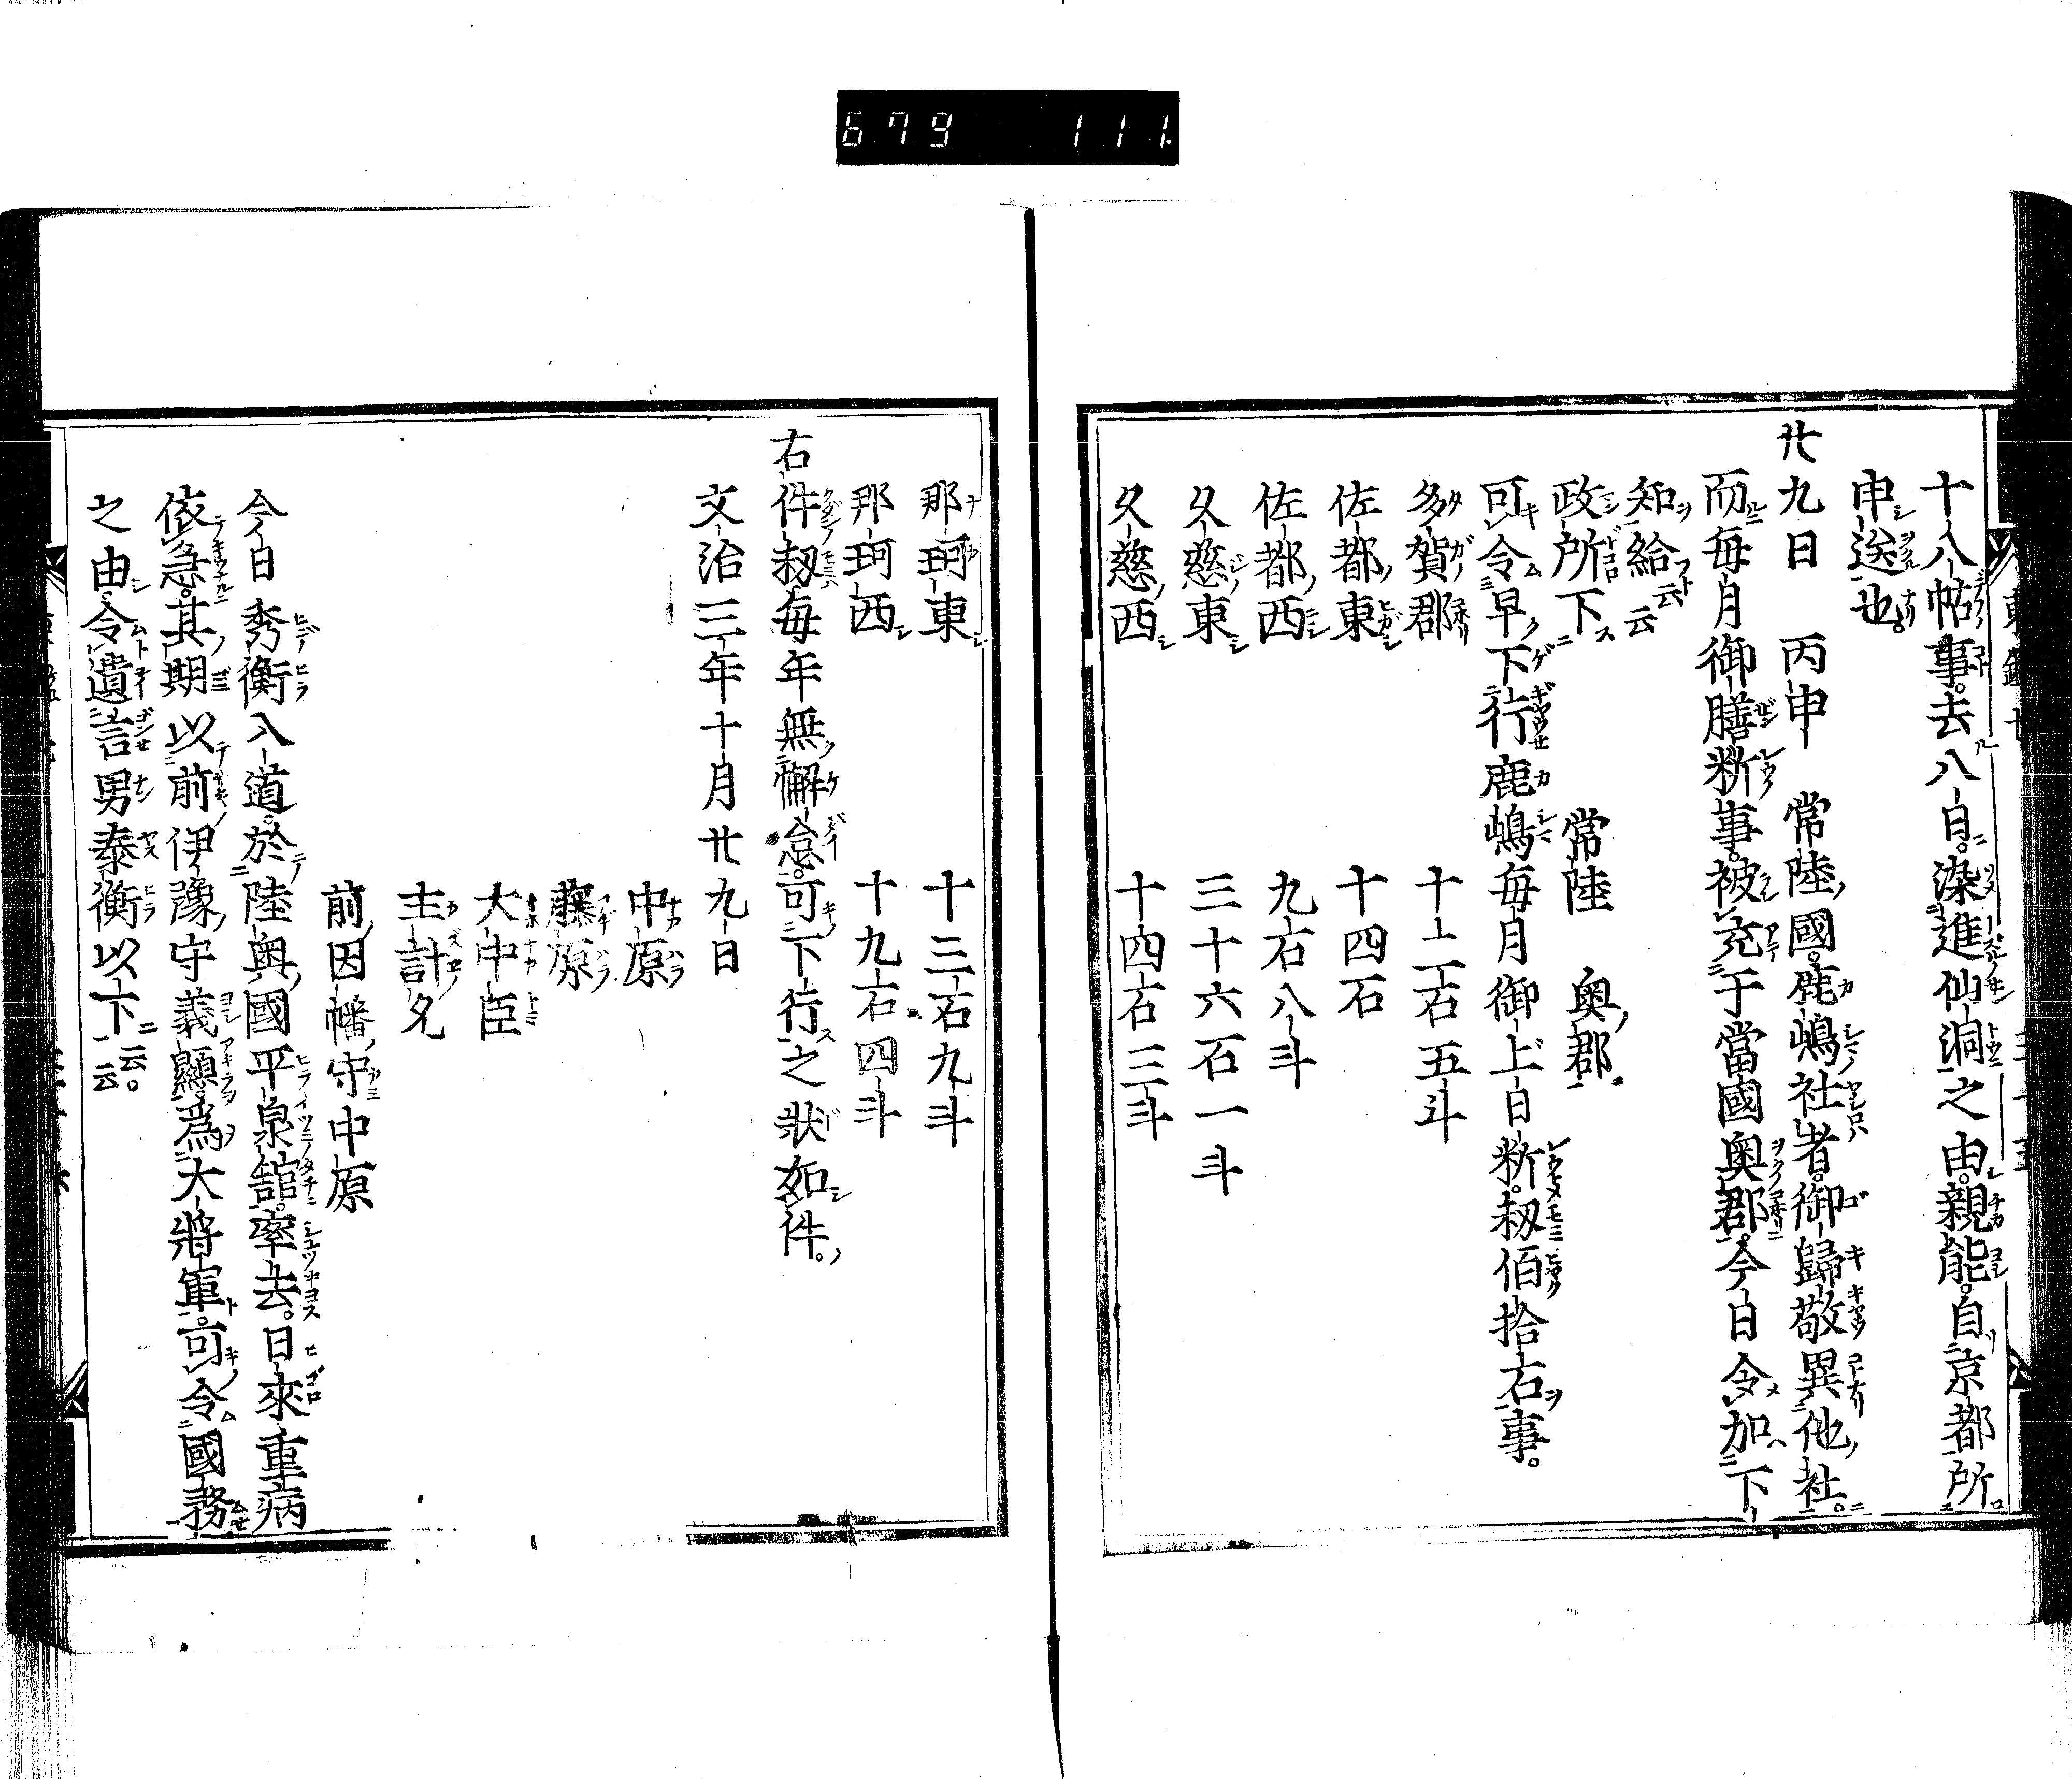 679 111.
十八帖事。去八日。染進仙洞之由。親能。自京都所
申送也。
廿九日 丙申 常陸國。鹿嶋社者。御歸敬異他社。
而毎月御膳新事。被充于當國奥郡。今日令加下
知給云云
政所下 常陸 奥郡
可令早下行鹿嶋毎月御上日新。籾佰拾石事。
多賀郡 十二石五斗
佐都東 十四石
佐都西 九石八斗
久慈東 三十六石一斗
久慈西 十四石三斗
那珂東 十三石九斗
那珂西 十九石四斗
右件籾毎年無懈怠。可下行之狀如件。
文治三年十月廿九日
中原
藤原
大中臣
主計允
前因幡守中原
今日秀衡入道。於陸奥國平泉舘。率去。日來重病
依急。其期以前伊豫守義顯。爲大將軍。可令國務
之由。令遺言男泰衡以下云云。